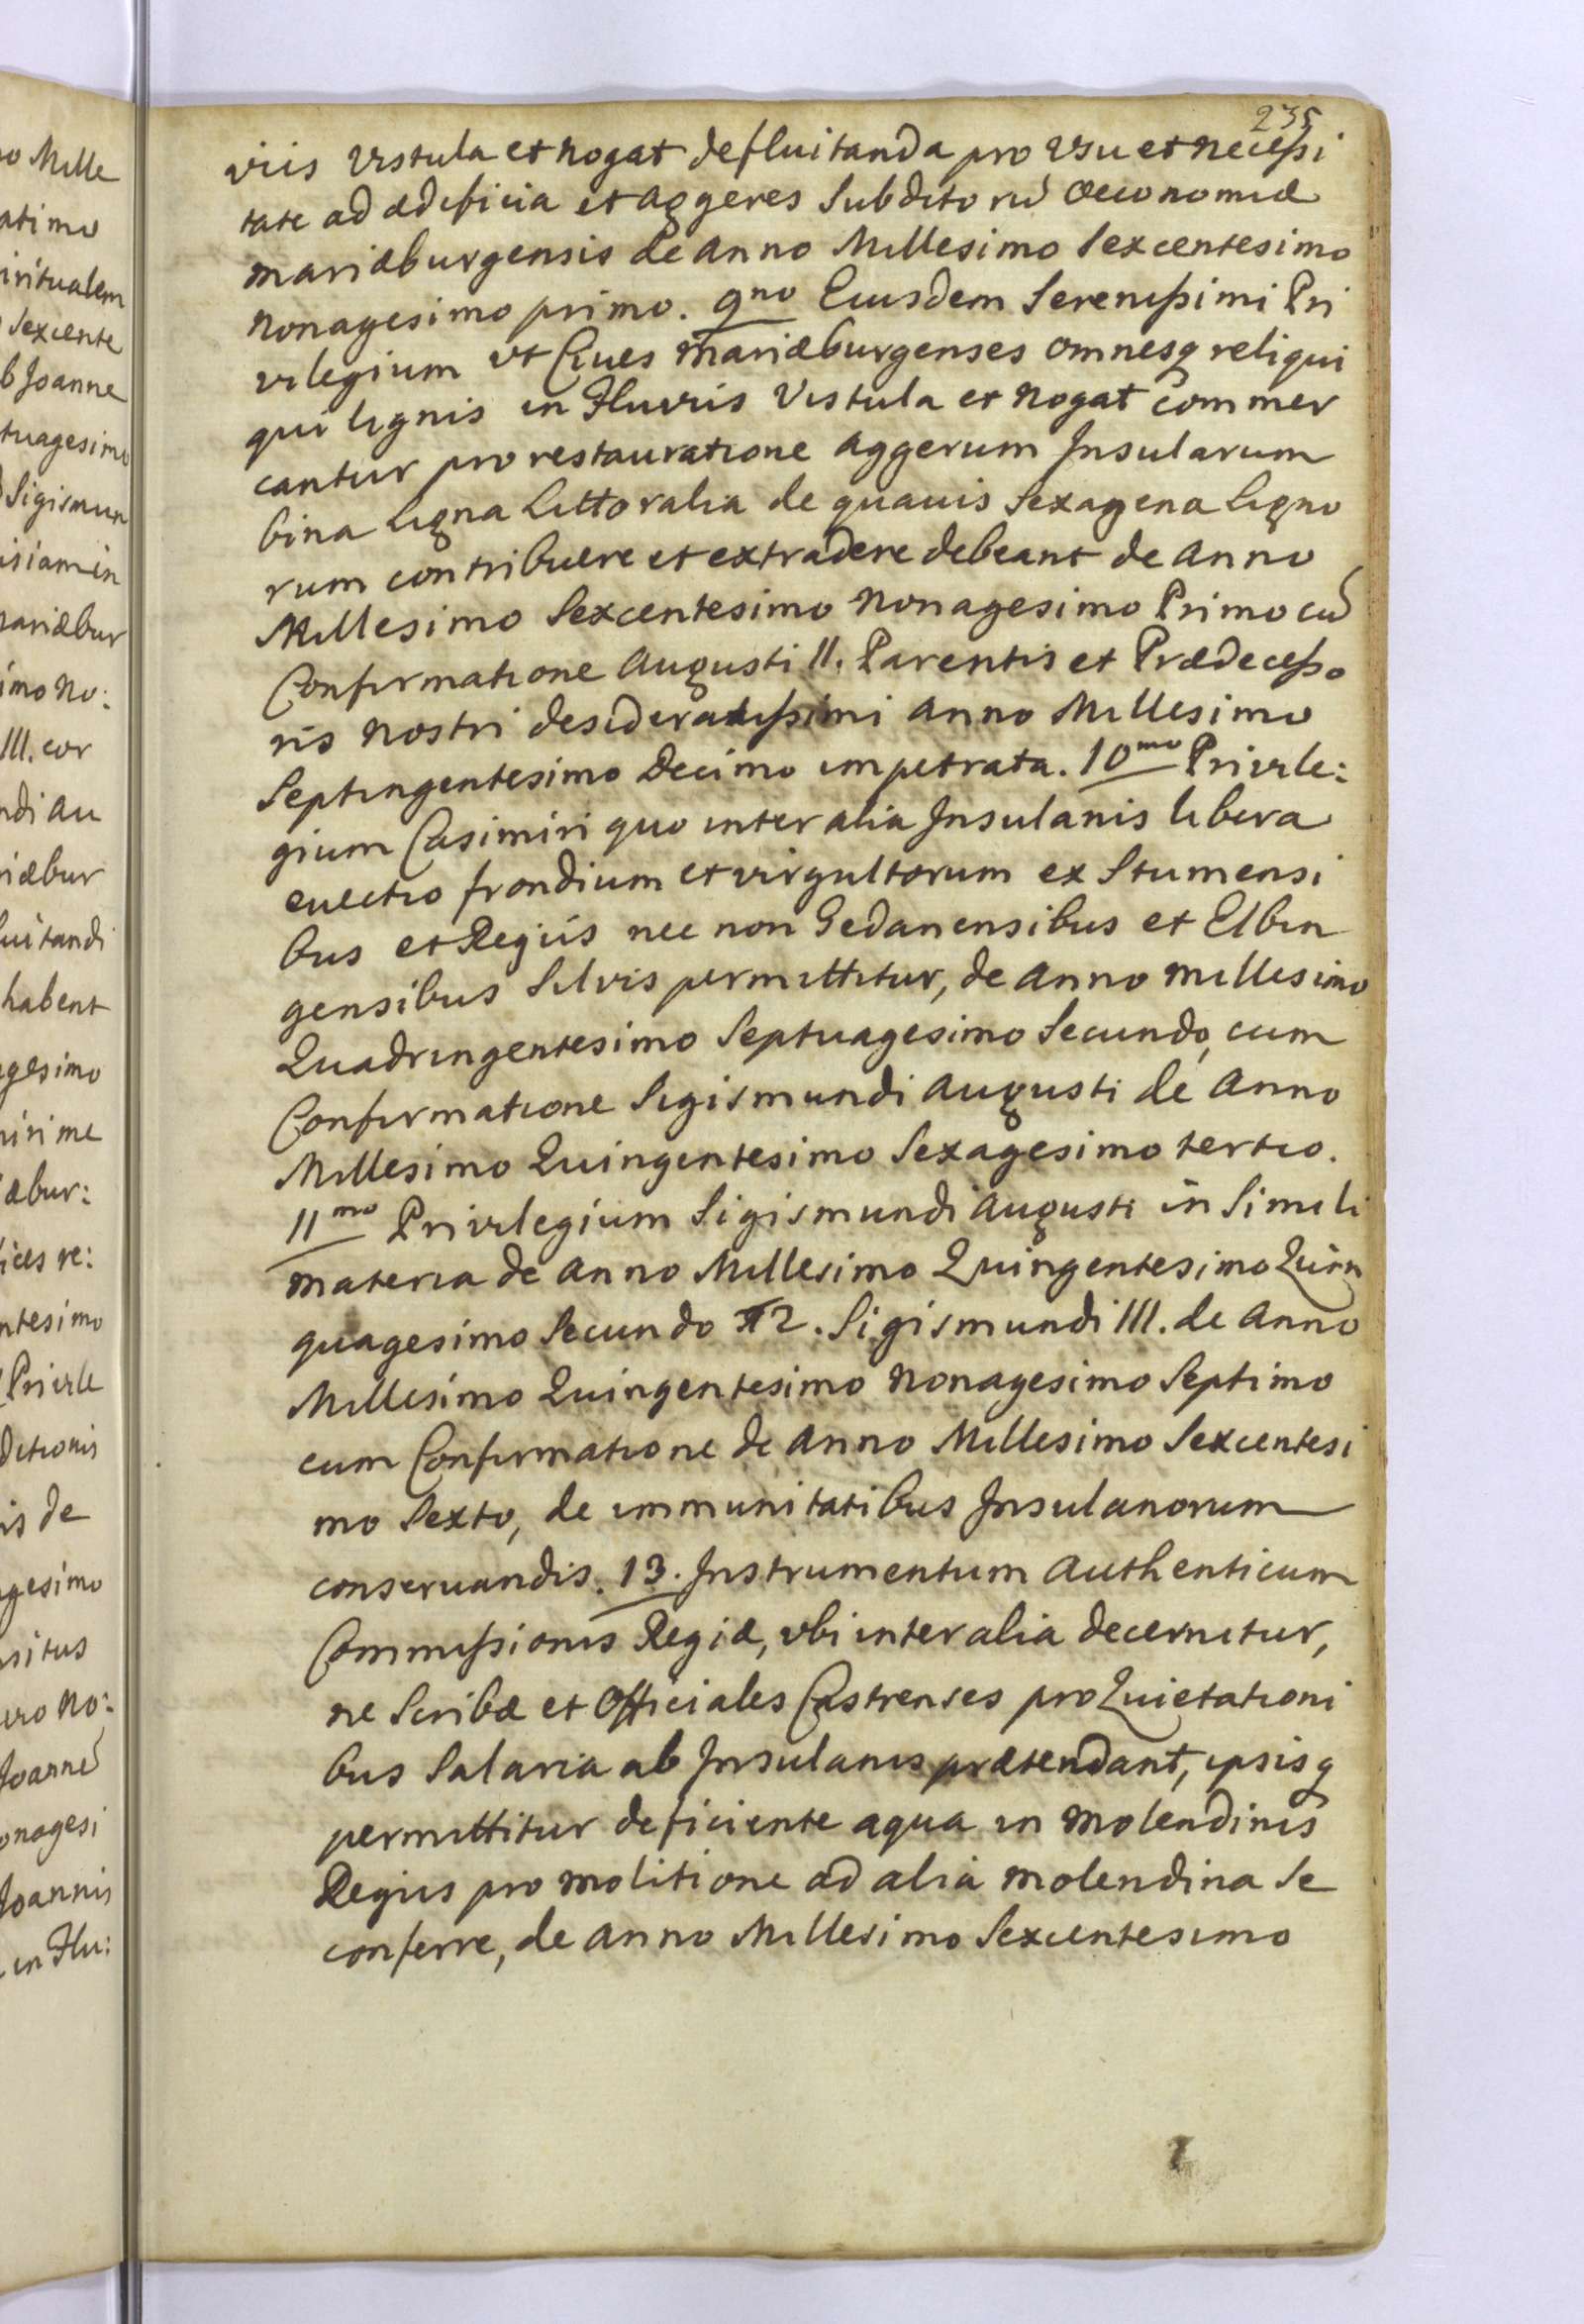 235
viis Vistula et Nogat defluitanda pro Vsu et necessi
tate ad ædificia et Aggeres Subditorũ Oeconomiæ
Mariæburgensis de Anno Millesimo Sexcentesimo
Nonagesimo primo. 9no Eiusdem Serenissimi Pri
vilegium vt Ciues Mariæburgenses Omnesq reliqui
qui lignis in Fluviis Vistula et Nogat Commer
cantur pro restauratione Aggerum Insularum
bina Ligna Littoralia de quauis Sexagena Ligno
rum contribuere et extradere debeant de Anno
Millesimo Sexcentesimo Nonagesimo Primo cũ
Confirmatione Augusti II. Parentis et Prædecesso
ris Nostri desideratissimi Anno Millesimo
Septingentesimo Decimo impetrata. 10mo Privile:
gium Casimiri quo inter alia Insulanis libera
euectio frondium et virgultorum ex Stumensi
bus et Regiis nec non Gedanensibus et Elbin
gensibus Silvis permittitur, de Anno Millesimo
Quadringentesimo Septuagesimo Secundo, cum
Confirmatione Sigismundi Augusti de Anno
Millesimo Quingentesimo Sexagesimo tertio.
11mo Privilegium Sigismundi Augusti in Simili
materia de Anno Millesimo Quingentesimo Quin
quagesimo Secundo 12. Sigismundi III. de Anno
Millesimo Quingentesimo Nonagesimo Septimo
cum Confirmatione de Anno Millesimo Sexcentesi
mo Sexto, de immunitatibus Insulanorum
conseruandis. 13. Instrumentum Authenticum
Commissionis Regiæ, vbi inter alia decernitur,
ne Scribæ et Officiales Castrenses pro Quietationi
bus Salaria ab Insulanis prætendant, ipsisq
permittitur deficiente aqua in Molendinis
Regiis pro molitione ad alia Molendina Se
conferre, de Anno Millesimo Sexcentesimo